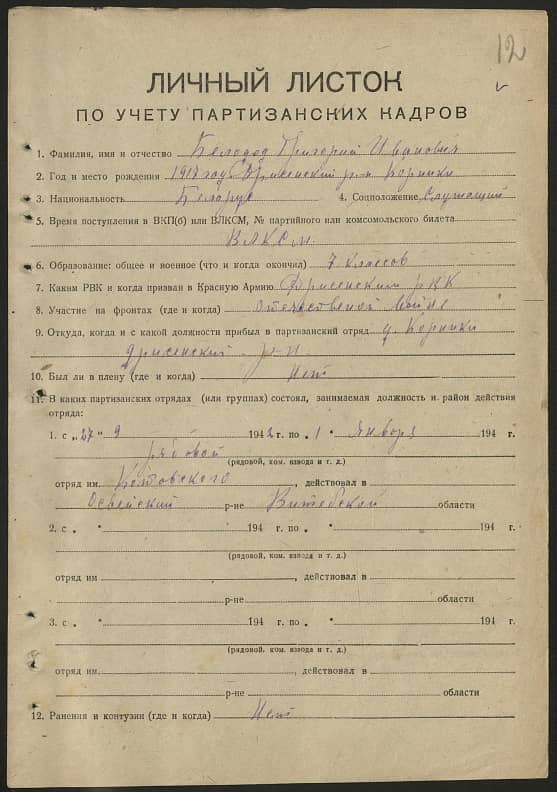 12
ЛИЧНЫЙ ЛИСТОК
ПО УЧЕТУ ПАРТИЗАНСКИХ КАДРОВ
1. Фамилия, имя и отчество Григорий Иванович
2. Год и место рождения 1918 год Дрисенский р-н Коринки
3. Национальность Беларус 4. Соцположение Служащий
5. Время поступления в ВКП(б) или ВЛКСМ, № партийного или комсомольского билета
ВЛКСМ
6. Образование: общее и военное (что и когда окончил) 7 классов
7. Каким РВК и когда призван в Красную Армию Дрисенским РВК
8. Участие на фронтах (где и когда) Отечественой Войне
9. Откуда, когда и с какой должности прибыл в партизанский отряд д. Коринки
Дрисенский р-н
10. Был ли в плену (где и когда) Нет
11. В каких партизанских отрядах (или группах) состоял, занимаемая должность и район действия
отряда:
1. с „27" 9 1942 г. по „1 " Января 194 г.
рядовой
(рядовой, ком. взвода и т. д.)
отряд им. Котовского, действовал в
Освейский р-не Витебской области
2. с „ " 194 г. по „ " 194 г.
(рядовой, ком. взвода и т. д.)
отряд им, действовал в
р-не области
3. с „ " 194 г. по „ " 194 г.
(рядовой, ком. взвода и т. д.)
отряд им., действовал в
р-не области
12. Ранения и контузии (где и когда) Нет